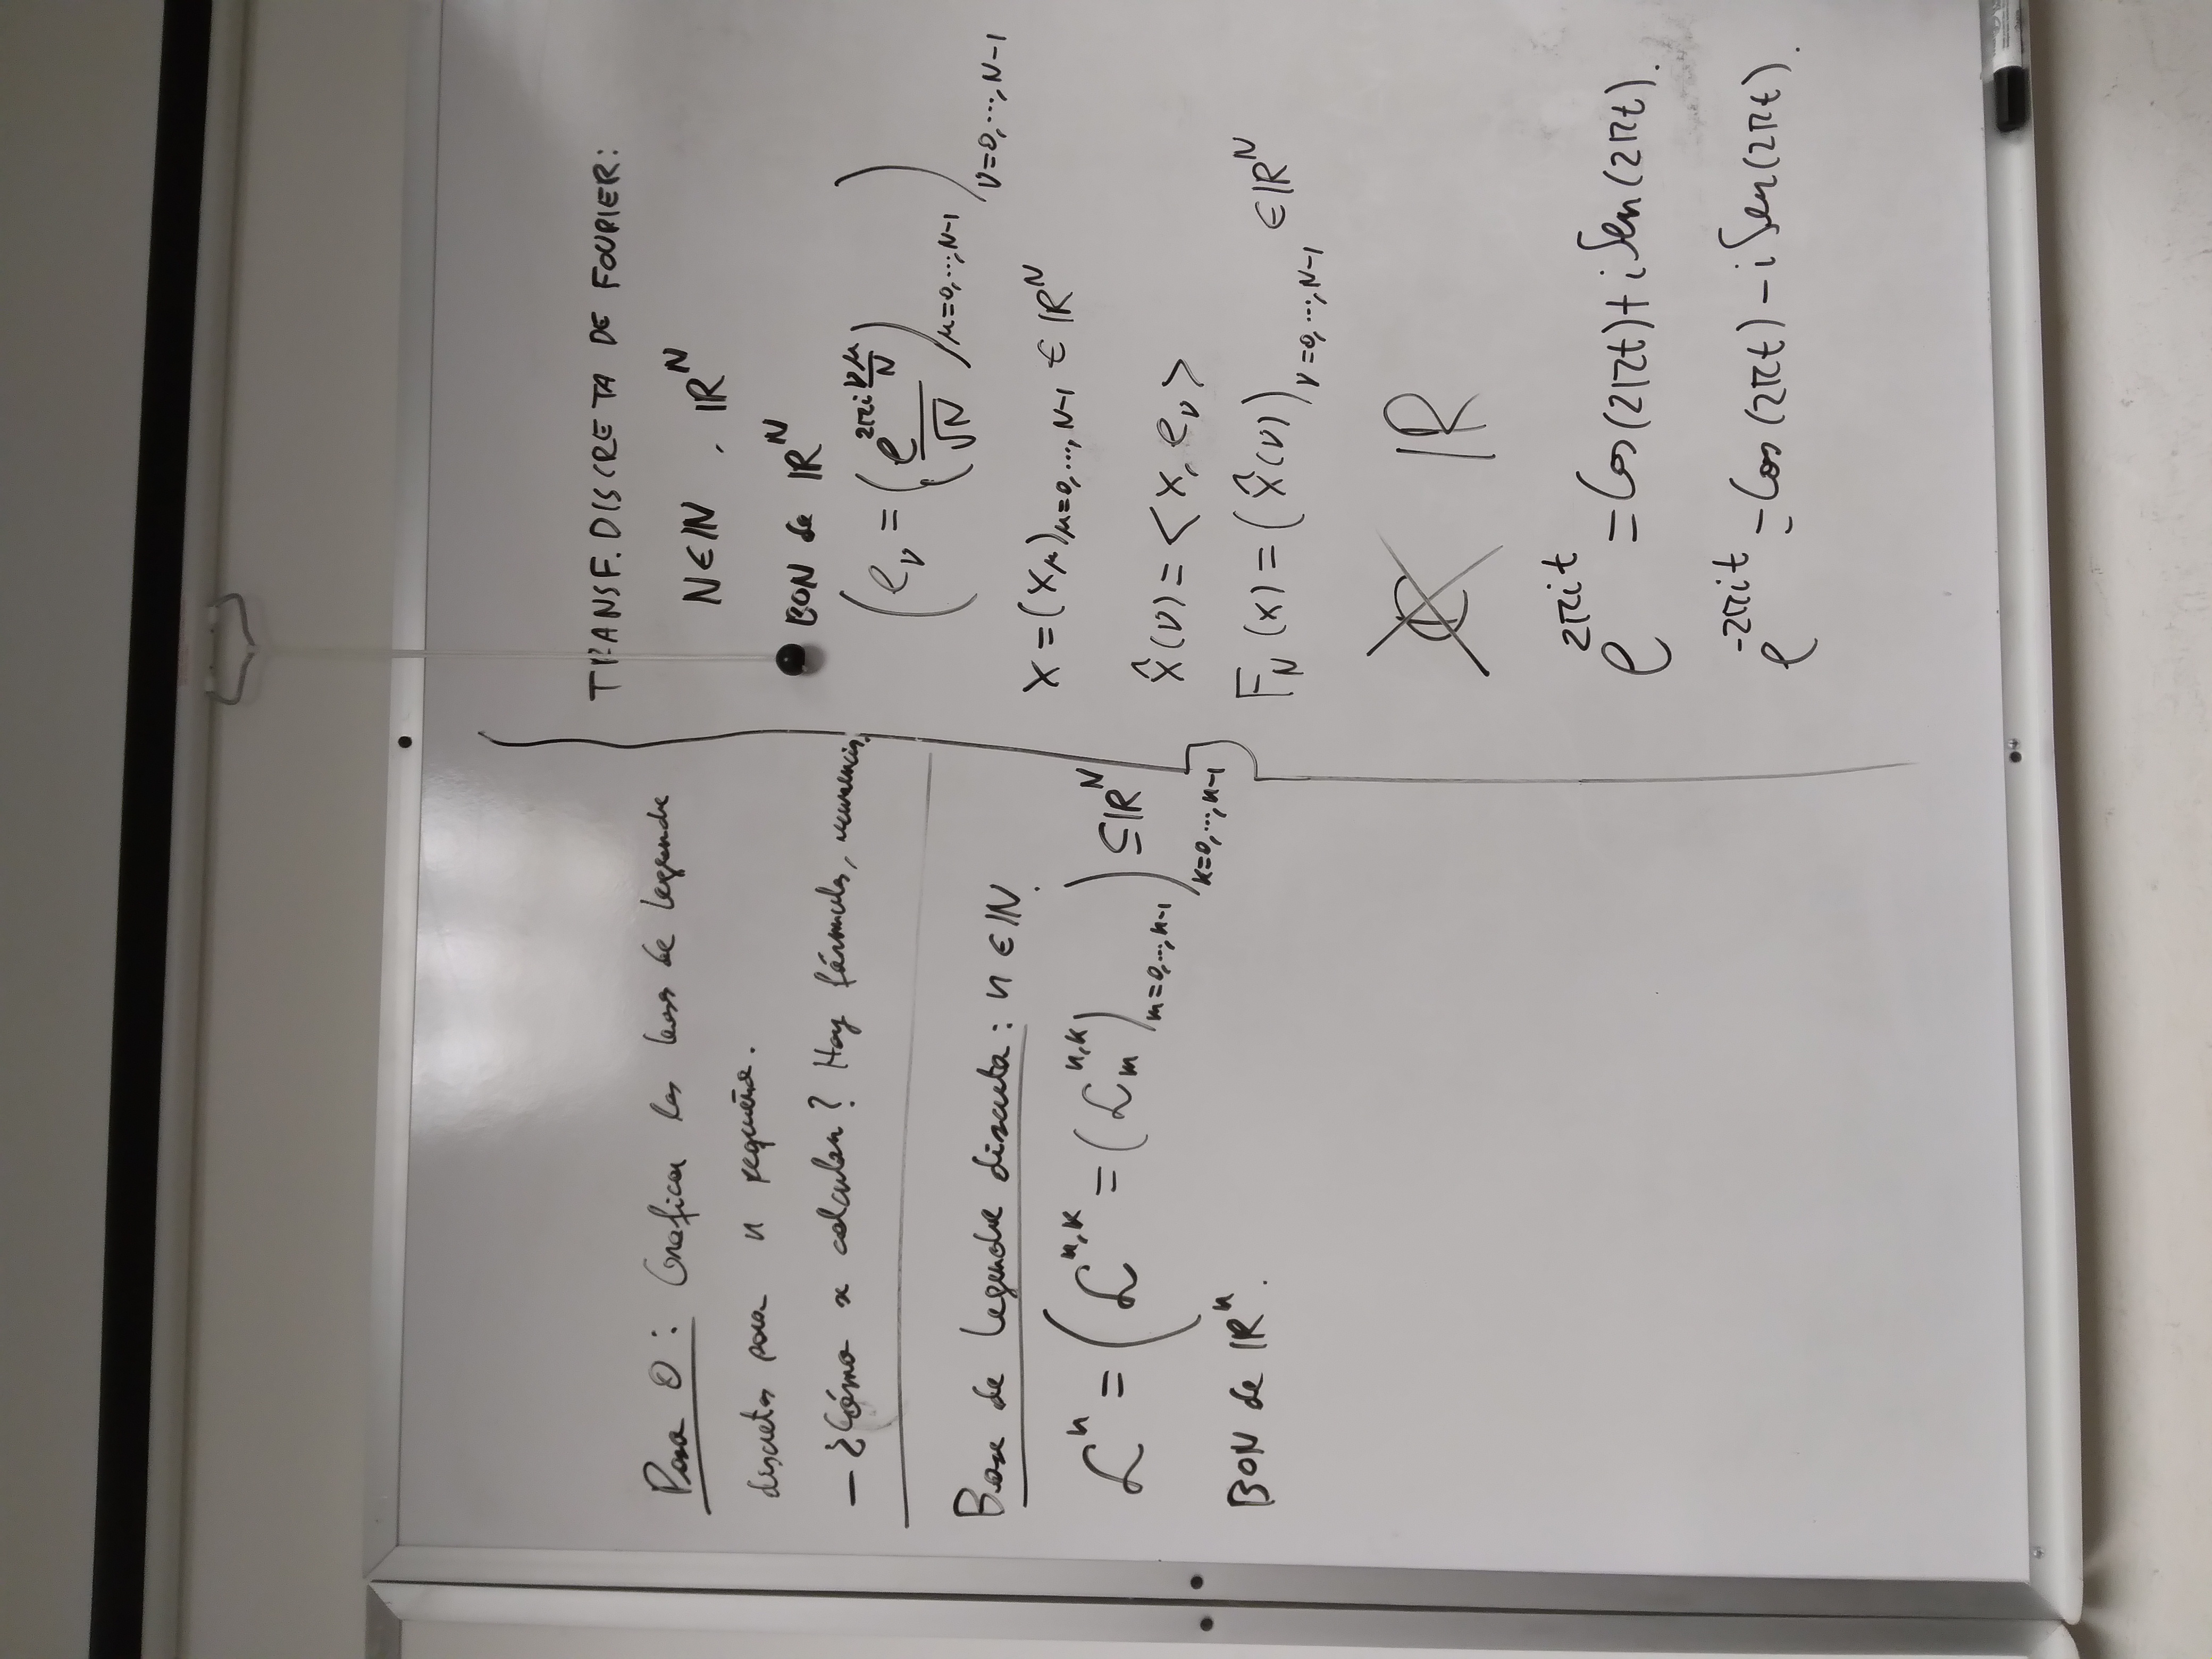 Paso 0: Graficar las bases de Legendre
discretas para n pequeña.
– ¿Cómo se calculan? Hay fórmulas, recurrencias.
Base de Legendre discreta: n ∈ ℕ.
ℒ^n = (ℒ^{n,k} = (ℒ_m^{n,k})_{m=0,...,n-1})_{k=0,...,n-1} ⊆ ℝ^N
BON de ℝ^n.
TRANSF. DISCRETA DE FOURIER:
N ∈ ℕ, ℝ^N
BON de ℝ^N
(e_ν = (e^{2πi νμ/N}/√N)_{μ=0,...,N-1})_{ν=0,...,N-1}
x = (x_μ)_{μ=0,...,N-1} ∈ ℝ^N
x̂(ν) = <x, e_ν>
F_N(x) = (x̂(ν))_{ν=0,...,N-1} ∈ ℝ^N
ℂ ℝ
e^{2πit} = Cos(2πt) + i Sen(2πt).
e^{-2πit} = Cos(2πt) – i Sen(2πt).